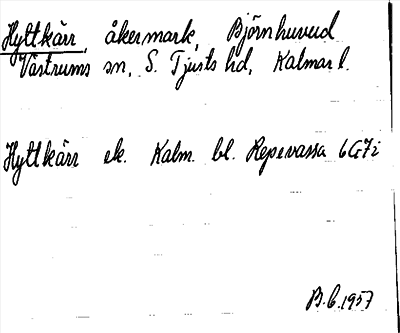 Hyltkärr, åkermark, Björnhuvud
Västrums sn, S. Tjusts hd, Kalmar l.
Hyltkärr ek. Kalm. bl. Repevassa 6G7i
B.G. 1957